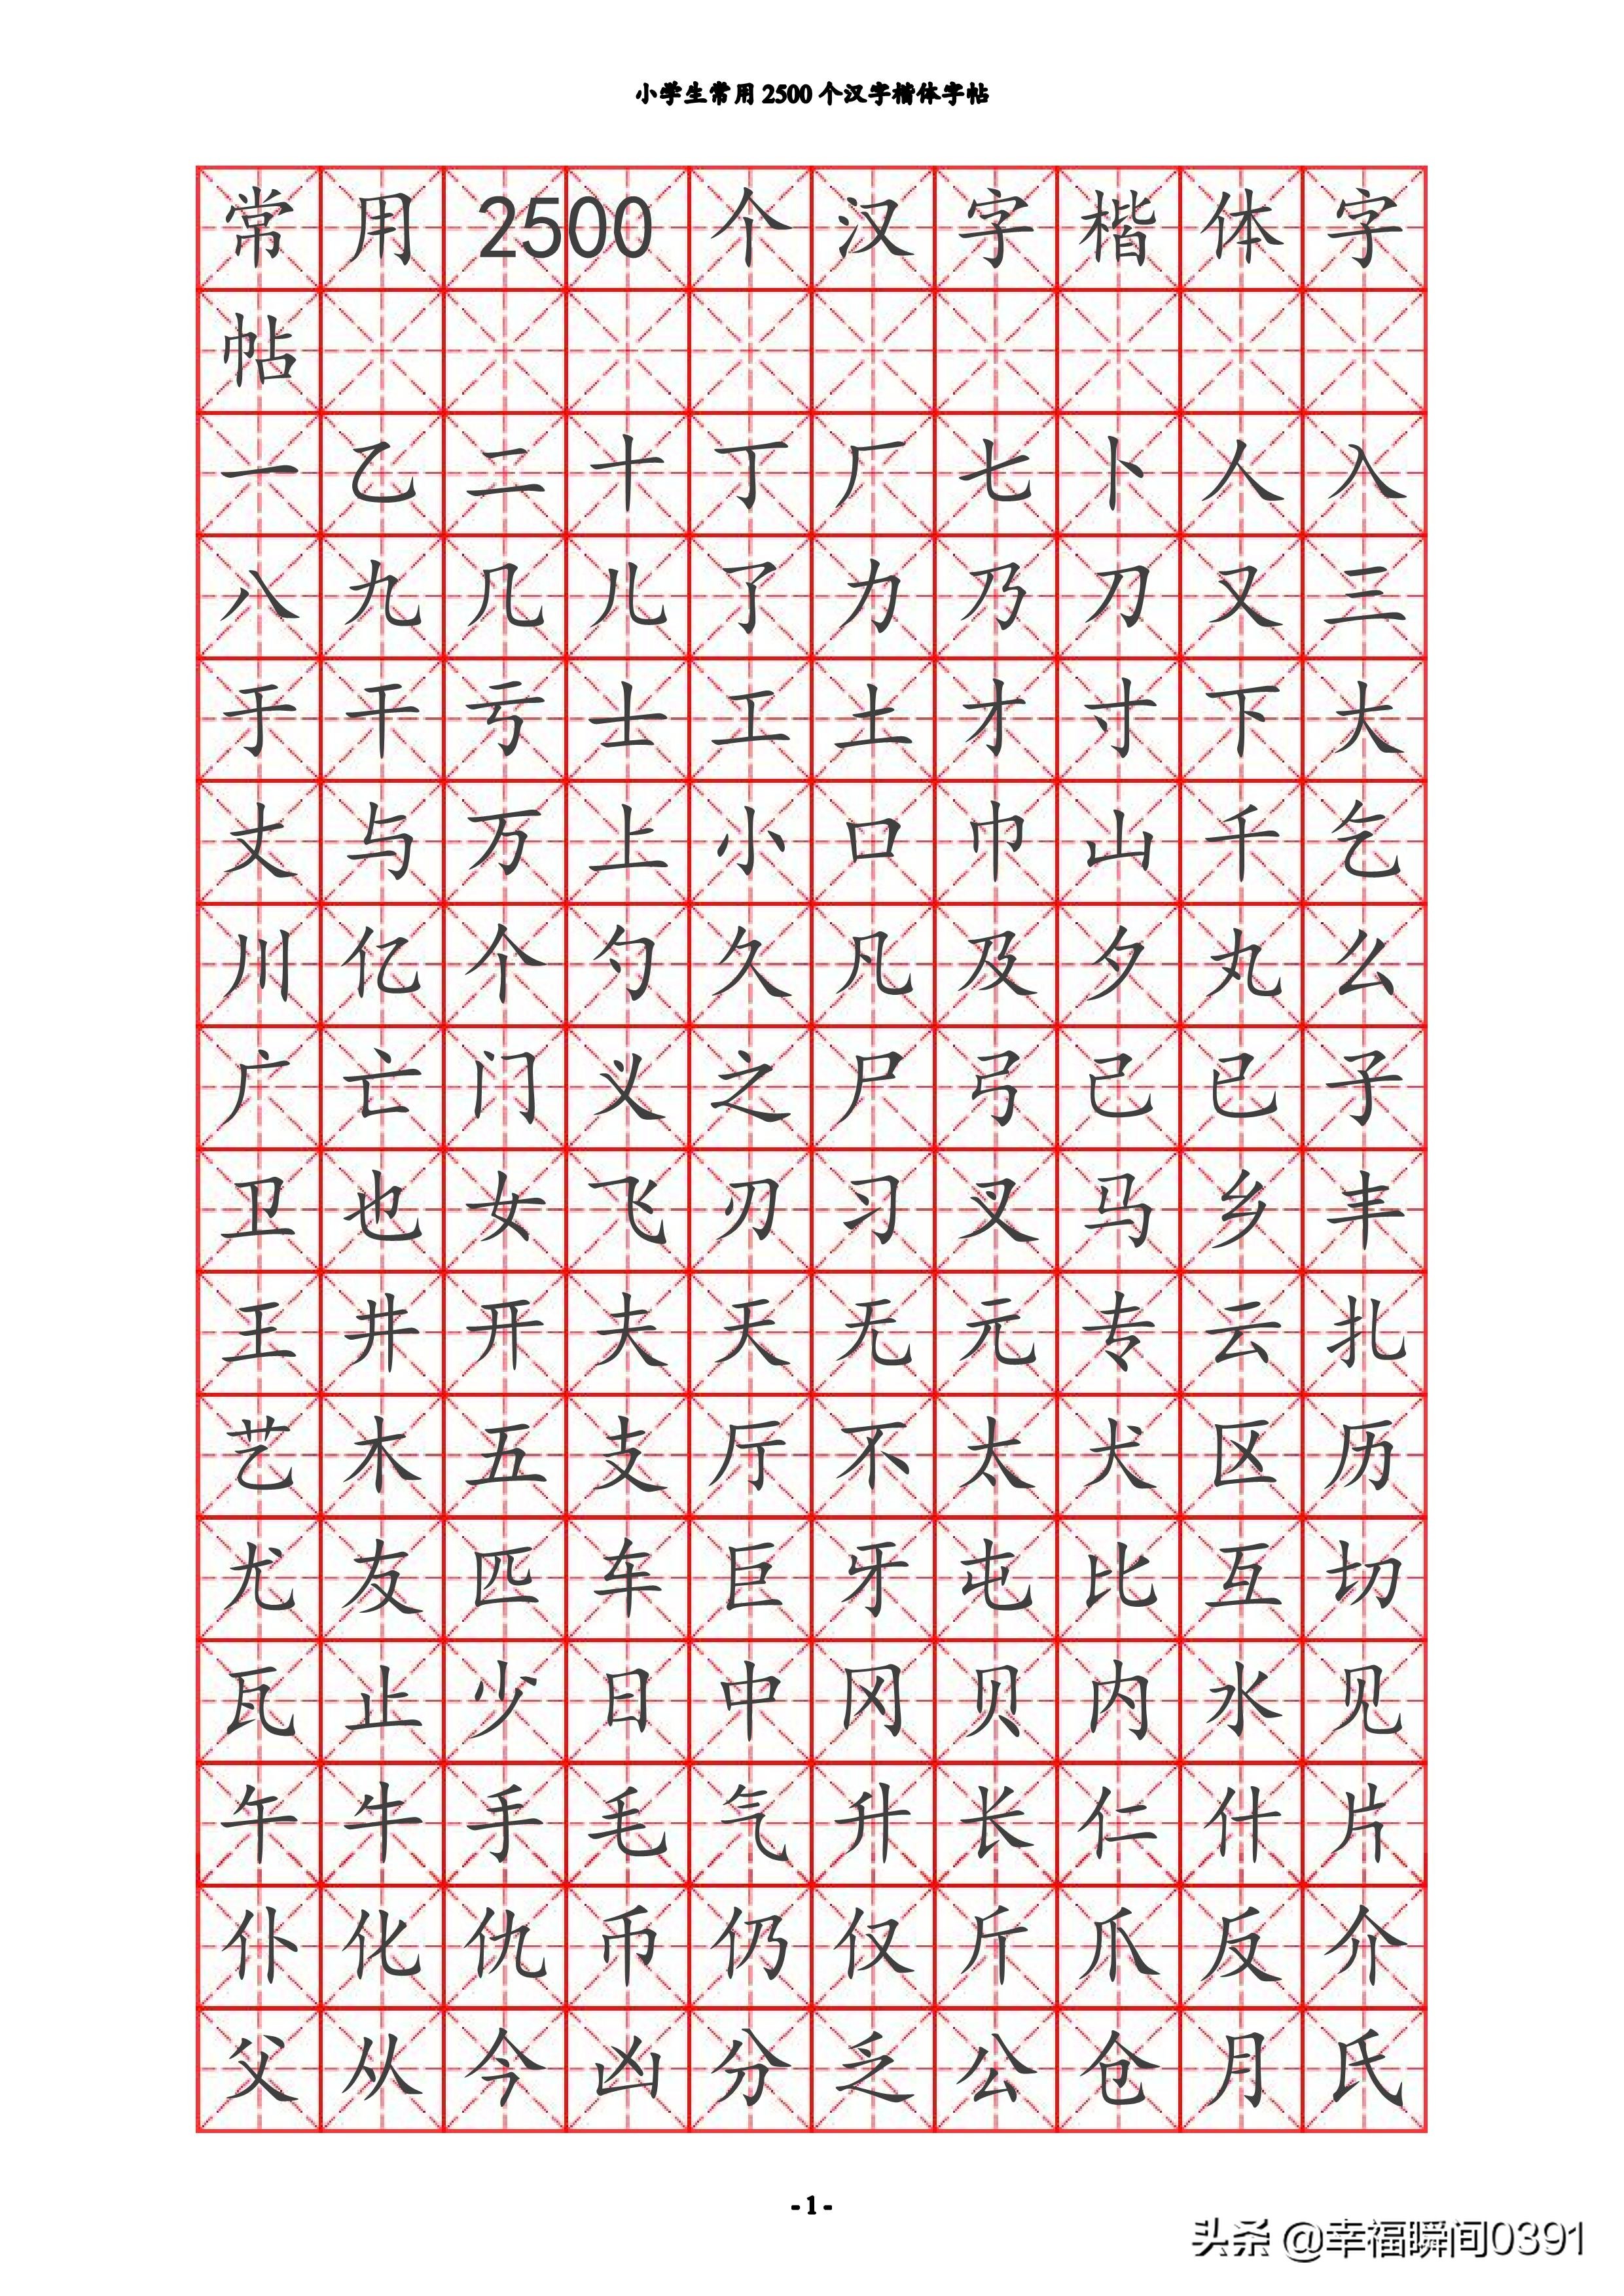 小学生常用2500个汉字楷体字帖
常用2500个汉字楷体字
帖
一乙二十丁厂七卜人入
八九几儿了力乃刀又三
于干亏士工土才寸下大
丈与万上小口巾山千乞
川亿个勺久凡及夕丸么
广亡门义之尸弓己已子
卫也女飞刃习叉马乡丰
王井开夫天无元专云扎
艺木五支厅不太犬区历
尤友匹车巨牙屯比互切
瓦止少日中冈贝内水见
午牛手毛气升长仁什片
仆化仇币仍仅斤爪反介
父从今凶分乏公仓月氏
- 1 -
头条 @幸福瞬间0391